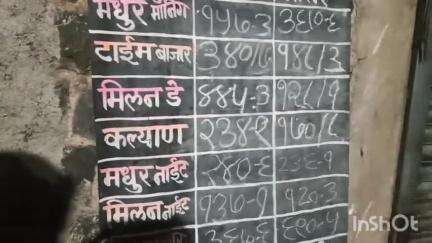 मधुर मॉर्निंग १५७-३ ३६०-९
टाईम बाजार ३४०/७ १४८/३
मिलन डे ४४५-३ १२८/१
कल्याण २३४-९ १७०/८
मधुर नाईट २४०-६ २३६-१
मिलन नाईट १३७-१ १२०-३
३६७-६ ६९०-५
InShOt